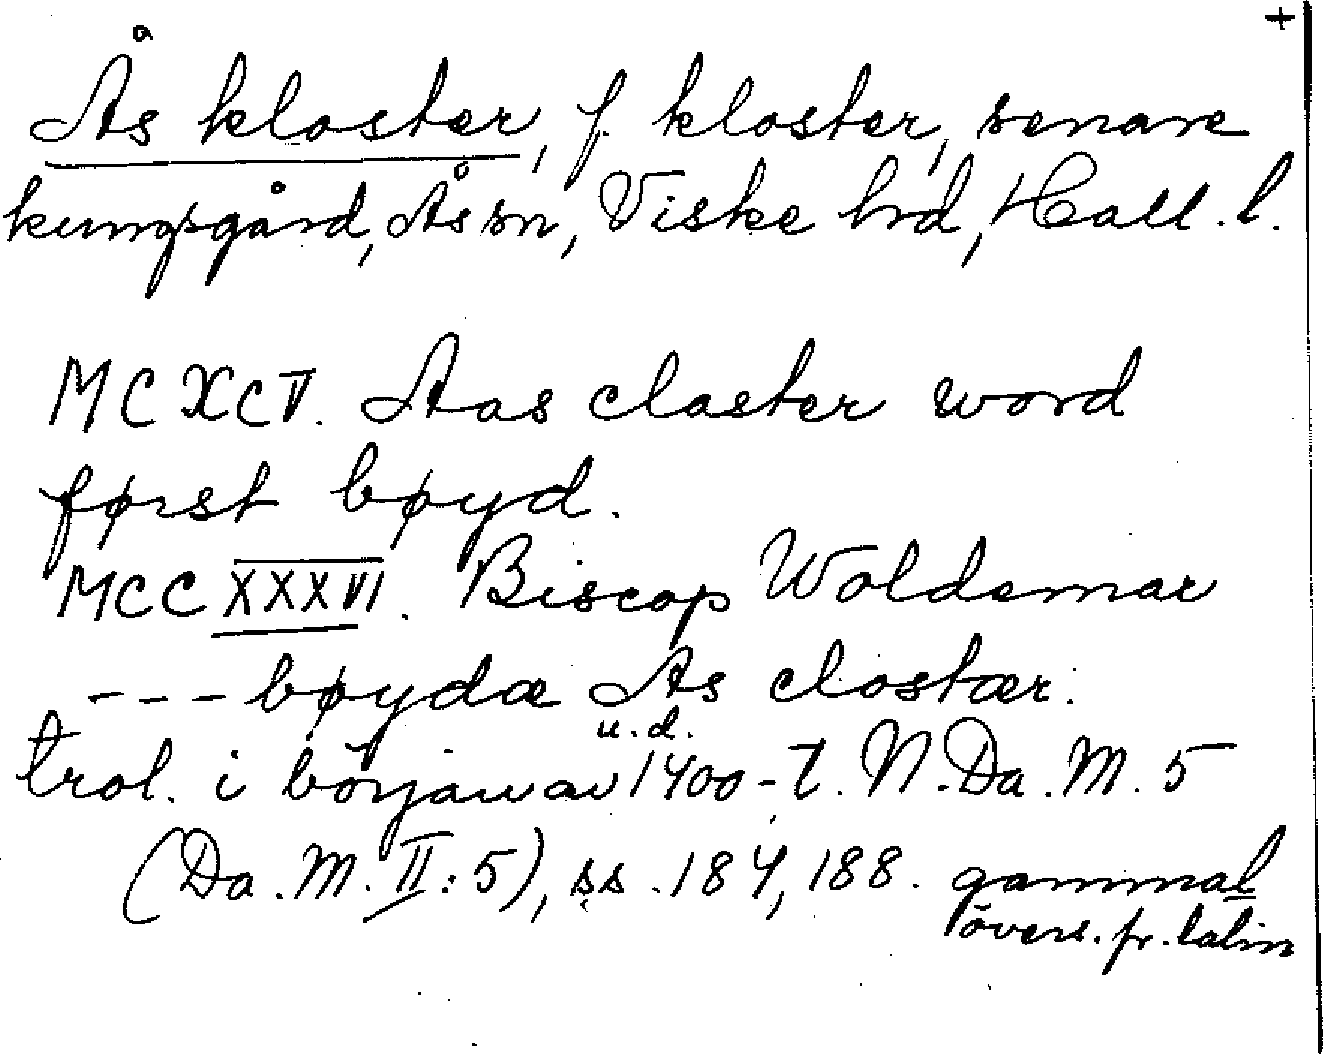 +
Ås kloster, f. kloster, senare
kungsgård, Ås sn, Viske hd, Hall. l.
MCXCV. Aas closter word
først bøyd.
MCCXXXVI. Biscop Woldemar
--- bøydæ As clostær.
u.d.
trol. i början av 1400-t. N.Da.M. 5
(Da.M. II:5), ss. 184, 188. gammal
övers. fr. latin